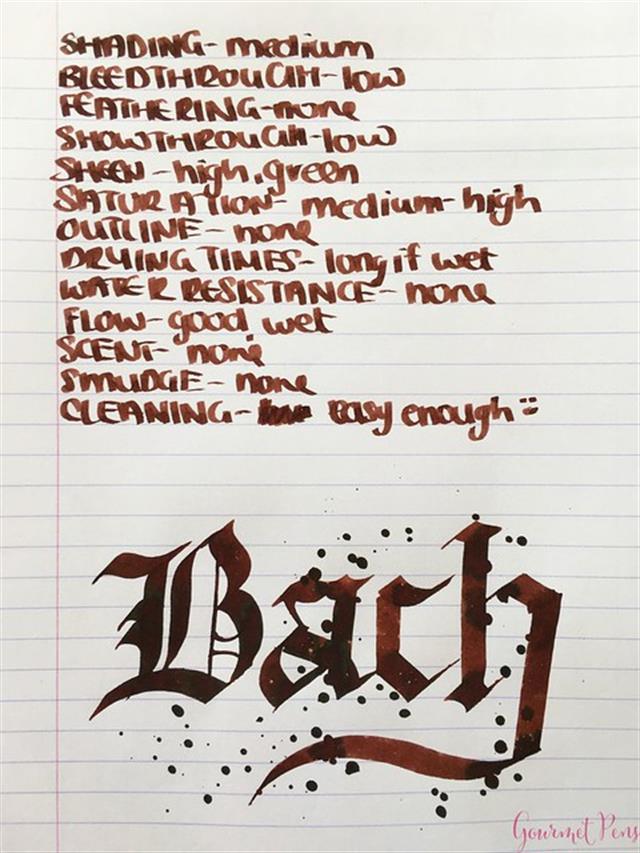 SHADING- medium
BLEEDTHROUGH- low
FEATHERING- none
SHOWTHROUGH- low
SHEEN - high, green
SATURATION- medium- high
OUTLINE - none
DRYING TIMES- long if wet
WATER RESISTANCE- none
FLOW- good, wet
SCENT- none
SMUDGE - none
CLEANING- easy enough :)
Bach
Gourmet Pens